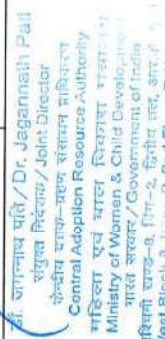 डॉ. जगन्नाथ पति/Dr. Jagannath Pati
संयुक्त निदेशक/Joint Director
केन्द्रीय दत्तक-ग्रहण संसाधन प्राधिकरण
Central Adoption Resource Authority
महिला एवं बाल विकास मंत्रालय
Ministry of Women & Child Development
भारत सरकार/Government of India
खण्ड-8, विंग-2, द्वितीय तल, आर.के.